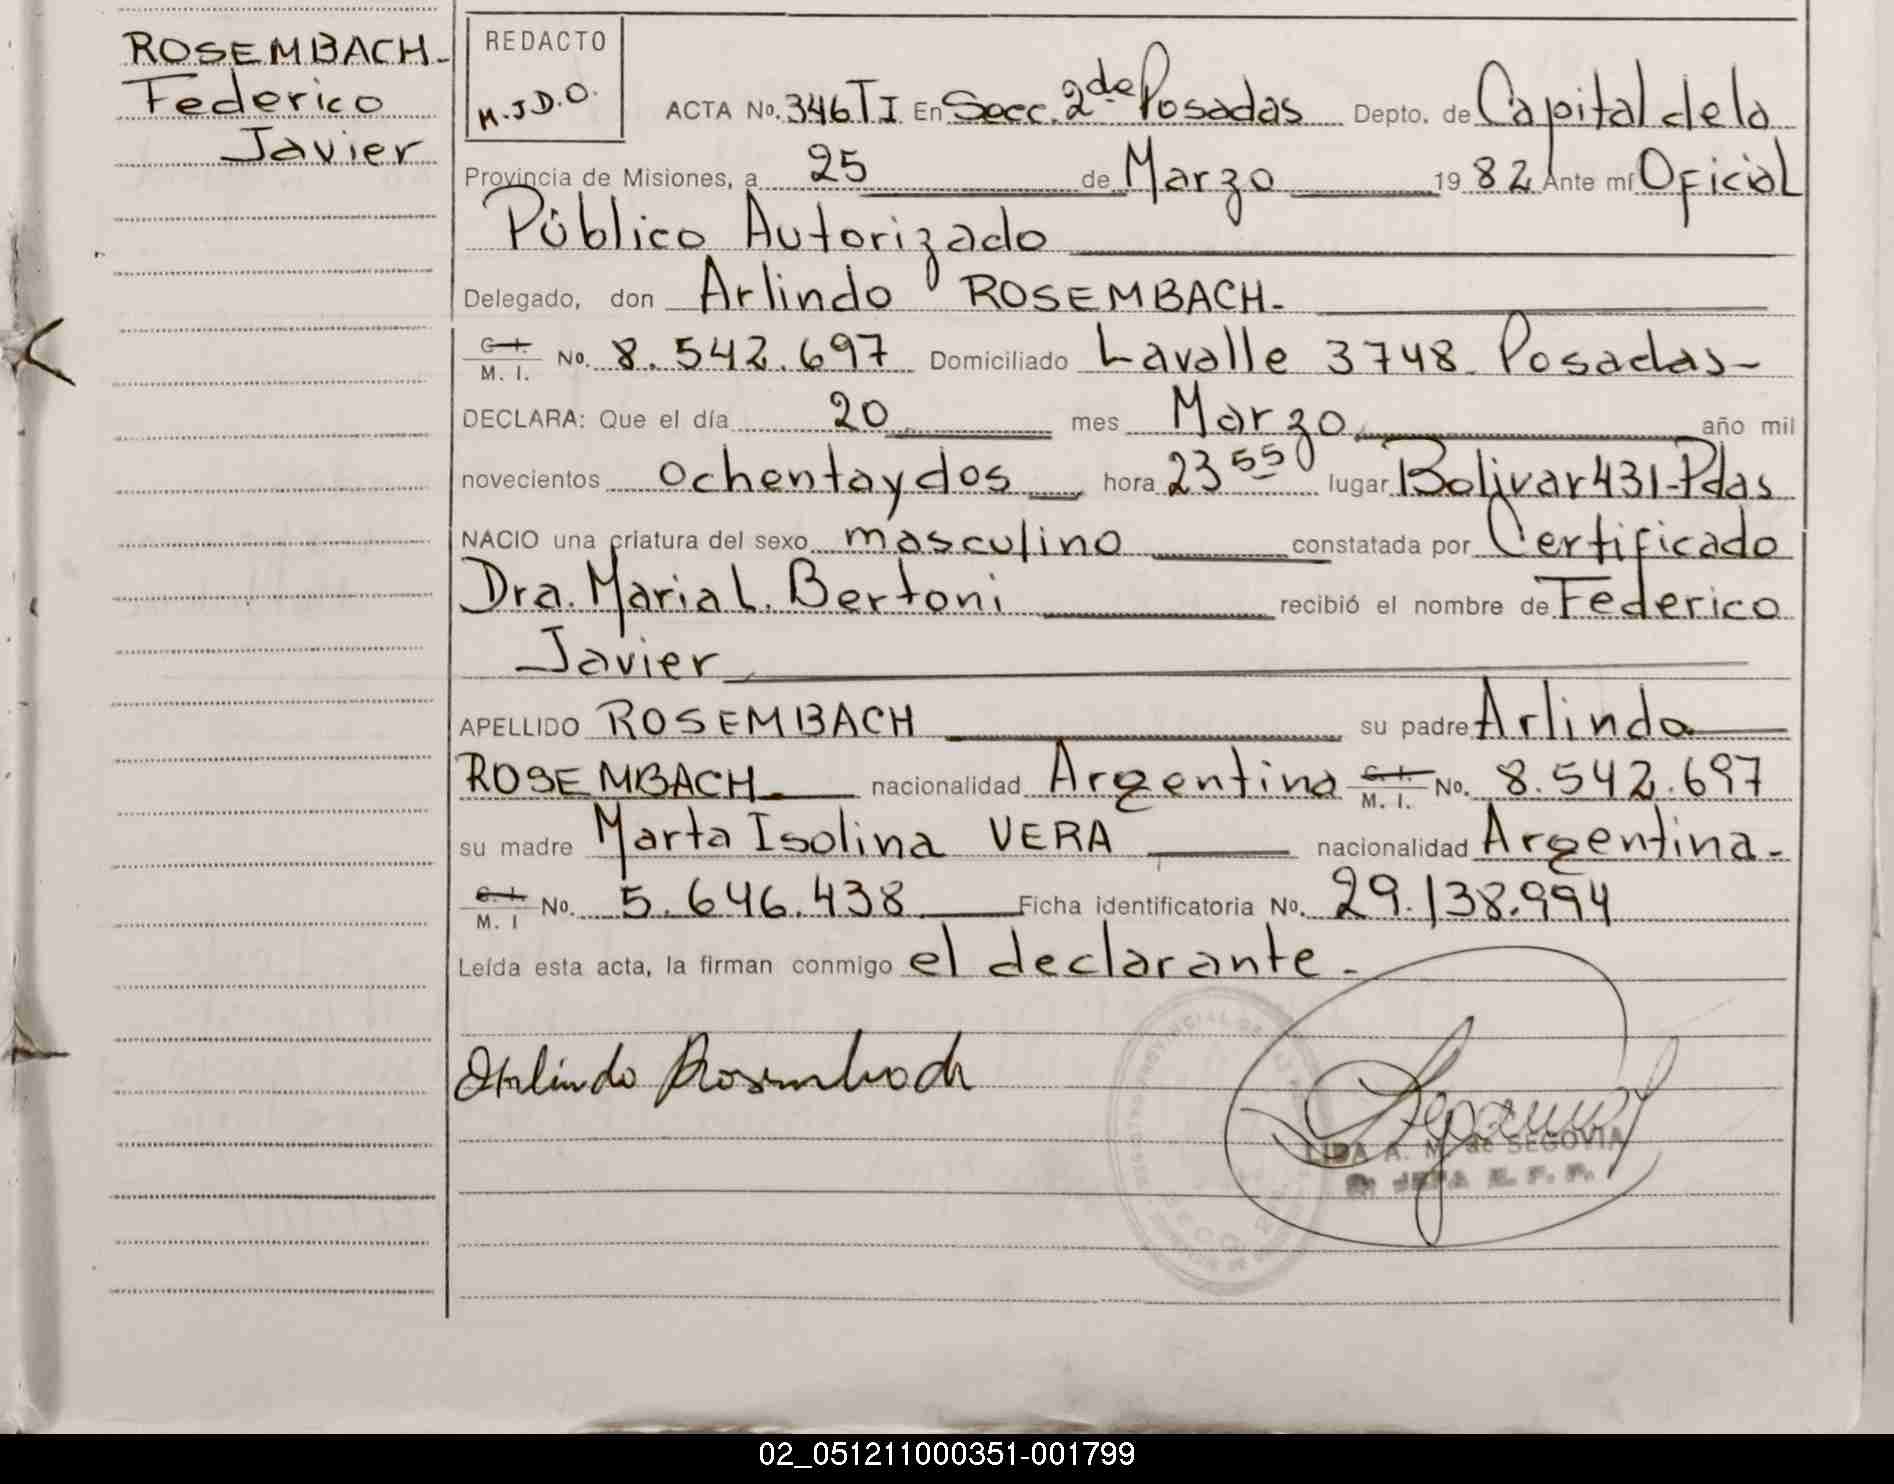 ROSEMBACH-
Federico
Javier
REDACTO
M.J.D.O.
ACTA No. 346 TI En Secc. 2da Posadas Depto. de Capital de la
Provincia de Misiones, a 25 de Marzo 1982 Ante mí Oficial
Público Autorizado
Delegado, don Arlindo ROSEMBACH-
C. I. M. I. No. 8.542.697 Domiciliado Lavalle 3748- Posadas-
DECLARA: Que el día 20 mes Marzo año mil
novecientos ochentaydos hora 23 55 lugar Bolivar 431-Pdas
NACIO una criatura del sexo masculino constatada por Certificado
Dra. Maria L. Bertoni recibió el nombre de Federico
Javier
APELLIDO ROSEMBACH su padre Arlindo
ROSEMBACH nacionalidad Argentina C. I. M. I. No. 8.542.697
su madre Marta Isolina VERA nacionalidad Argentina-
C. I. M. I No. 5.646.438 Ficha identificatoria No. 29.138.994
Leída esta acta, la firman conmigo el declarante.-
Arlindo Rosembach
A. M. de SEGOVIA
JEFA
02_051211000351-001799